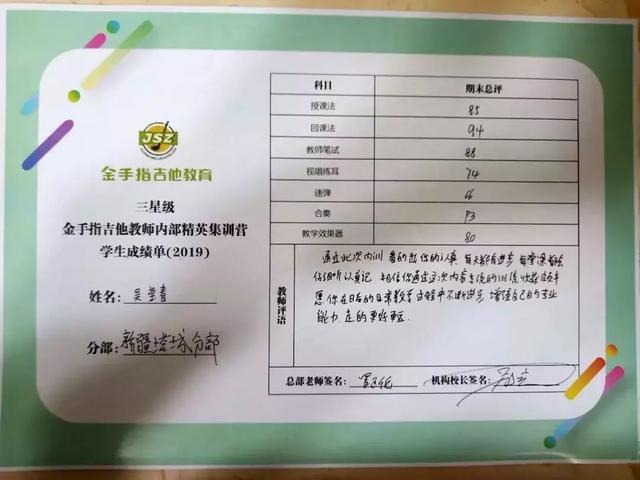 JSZ
金手指吉他教育
三星级
金手指吉他教师内部精英集训营
学生成绩单(2019)
姓名：吴莹青
分部：新疆塔城分部
科目 期末总评
授课法 85
回课法 94
教师笔试 88
视唱练耳 74
速弹 66
合奏 93
教学效果器 80
教师评语
通过此次内训 看的出你的认真 每天都有进步 每堂课都会
仔细听认真记 相信你通过这次内容系统的训练
愿你在日后的日常教学过程中不断进步 增强自己的专业
能力 走的更好更远
总部老师签名： 机构校长签名：